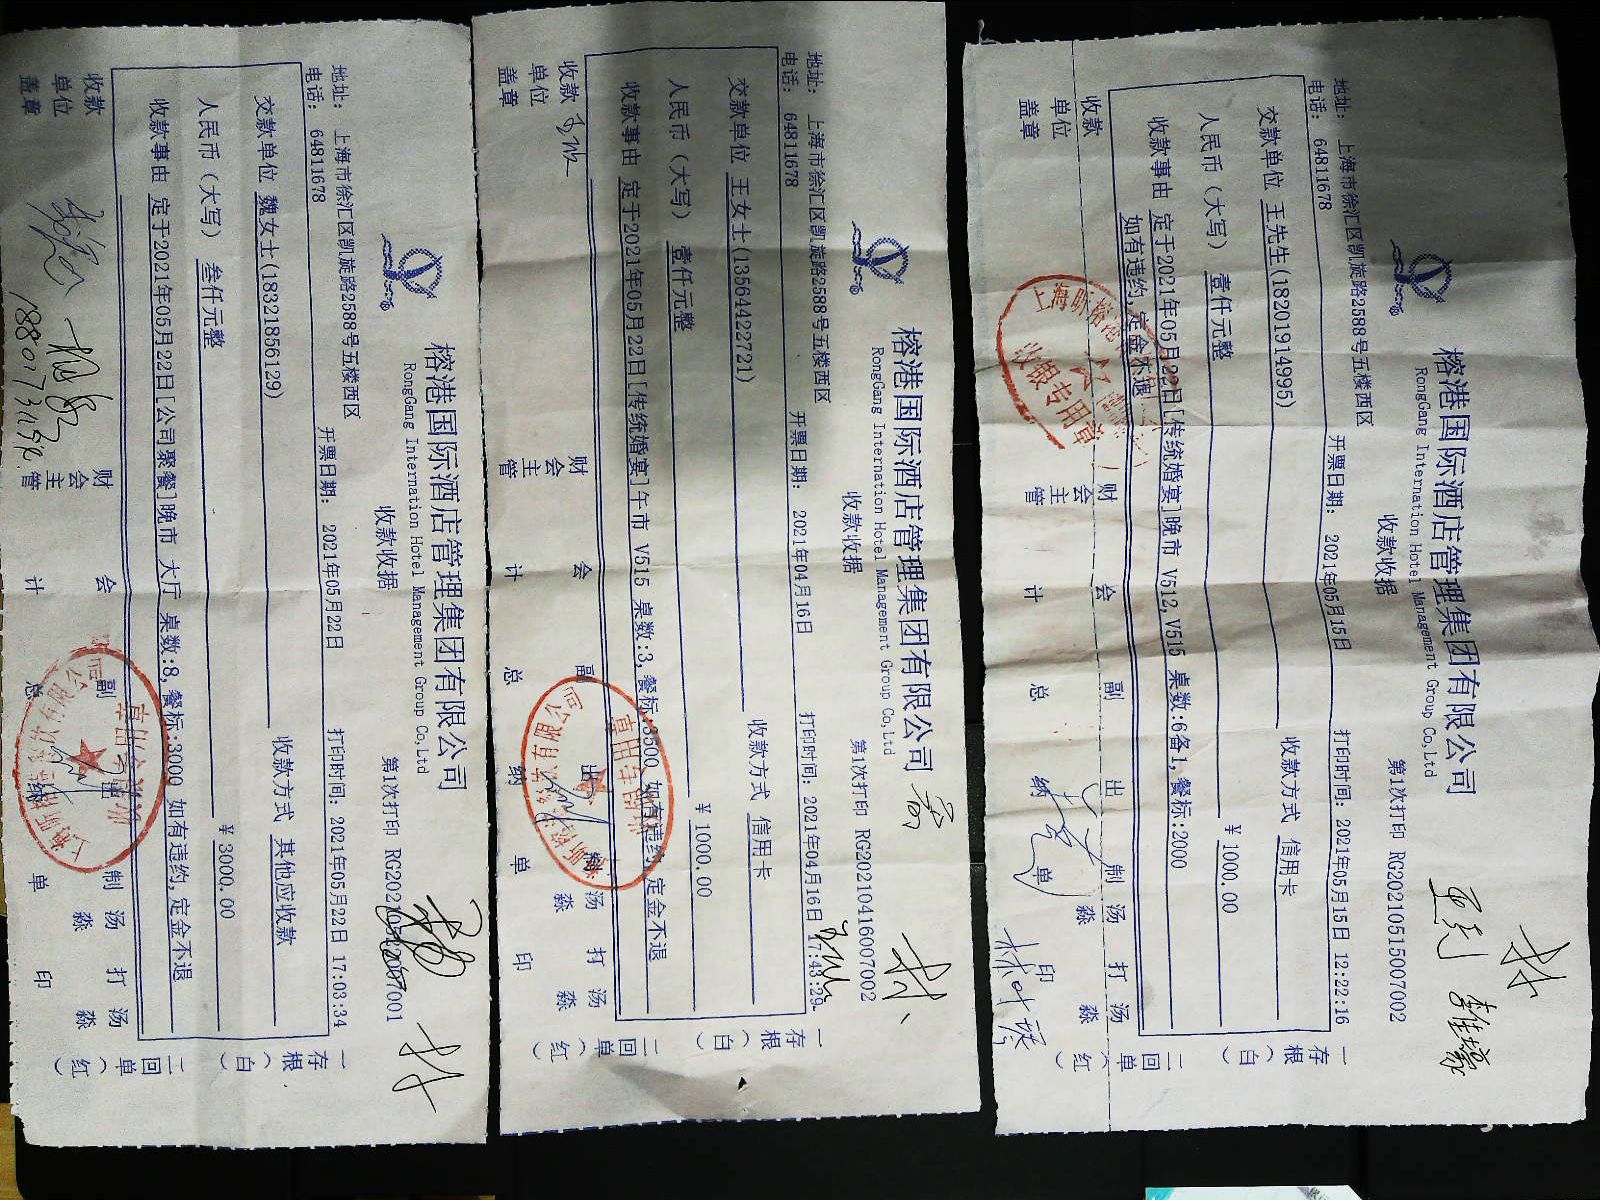 榕港国际酒店管理集团有限公司
RongGang Internation Hotel Management Group Co,Ltd
收款收据
第1次打印 RG20210522007001
地址: 上海市徐汇区凯旋路2588号五楼西区
电话: 64811678
开票日期: 2021年05月22日
打印时间: 2021年05月22日 17:03:34
交款单位 魏女士(18321856129)
收款方式 其他应收款
人民币(大写) 叁仟元整
¥ 3000.00
收款事由 定于2021年05月22日[公司聚餐]晚市 大厅 桌数:8,餐标:3000 如有违约,定金不退
收款单位盖章
财会主管
会计
副总
出纳
制单
汤淼
打印
汤淼
一存根(白)
二回单(红)
18801731178
榕港国际酒店管理集团有限公司
RongGang Internation Hotel Management Group Co,Ltd
收款收据
第1次打印 RG20210416007002
地址: 上海市徐汇区凯旋路2588号五楼西区
电话: 64811678
开票日期: 2021年04月16日
打印时间: 2021年04月16日 17:43:29
交款单位 王女士(13564422721)
收款方式 信用卡
人民币(大写) 壹仟元整
¥ 1000.00
收款事由 定于2021年05月22日[传统婚宴]午市 V515 桌数:3,餐标:3500 如有违约,定金不退
收款单位盖章
财会主管
会计
副总
出纳
制单
汤淼
打印
汤淼
一存根(白)
二回单(红)
榕港国际酒店管理集团有限公司
RongGang Internation Hotel Management Group Co,Ltd
收款收据
第1次打印 RG20210515007002
地址: 上海市徐汇区凯旋路2588号五楼西区
电话: 64811678
开票日期: 2021年05月15日
打印时间: 2021年05月15日 12:22:16
交款单位 王先生(18201914995)
收款方式 信用卡
人民币(大写) 壹仟元整
¥ 1000.00
收款事由 定于2021年05月22日[传统婚宴]晚市 V512,V515 桌数:6备1,餐标:2000
如有违约,定金不退
收款单位盖章
财会主管
会计
副总
出纳
制单
汤淼
打印
汤淼
一存根(白)
二回单(红)